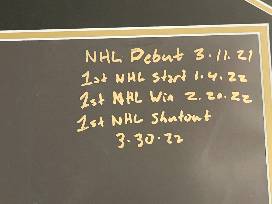 NHL Debut 3.11.21
1st NHL Start 1.4.22
1st NHL Win 2.20.22
1st NHL Shutout
3.30.22